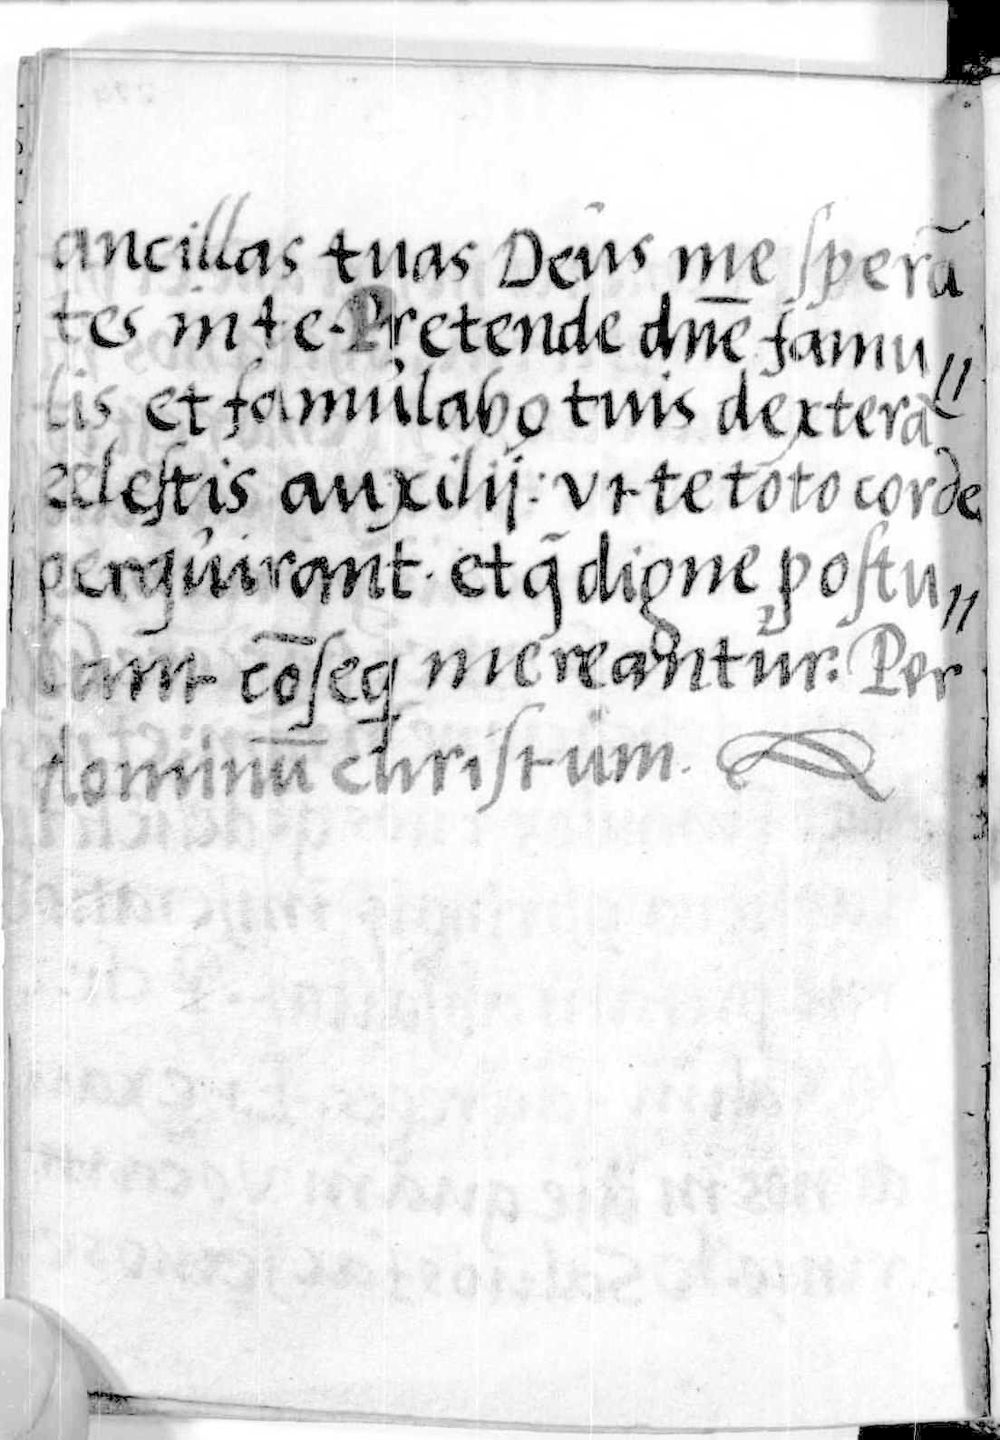 ancillas tuas Deus me sperā
tes in te. Pretende dn̄e famu〃
lis et famulabꝫ tuis dexterā
celestis auxilij: vt te toto corde
perquirant. et q̄ digne postu〃
lant cōseq̄ mereantur. Per
dominū christum.